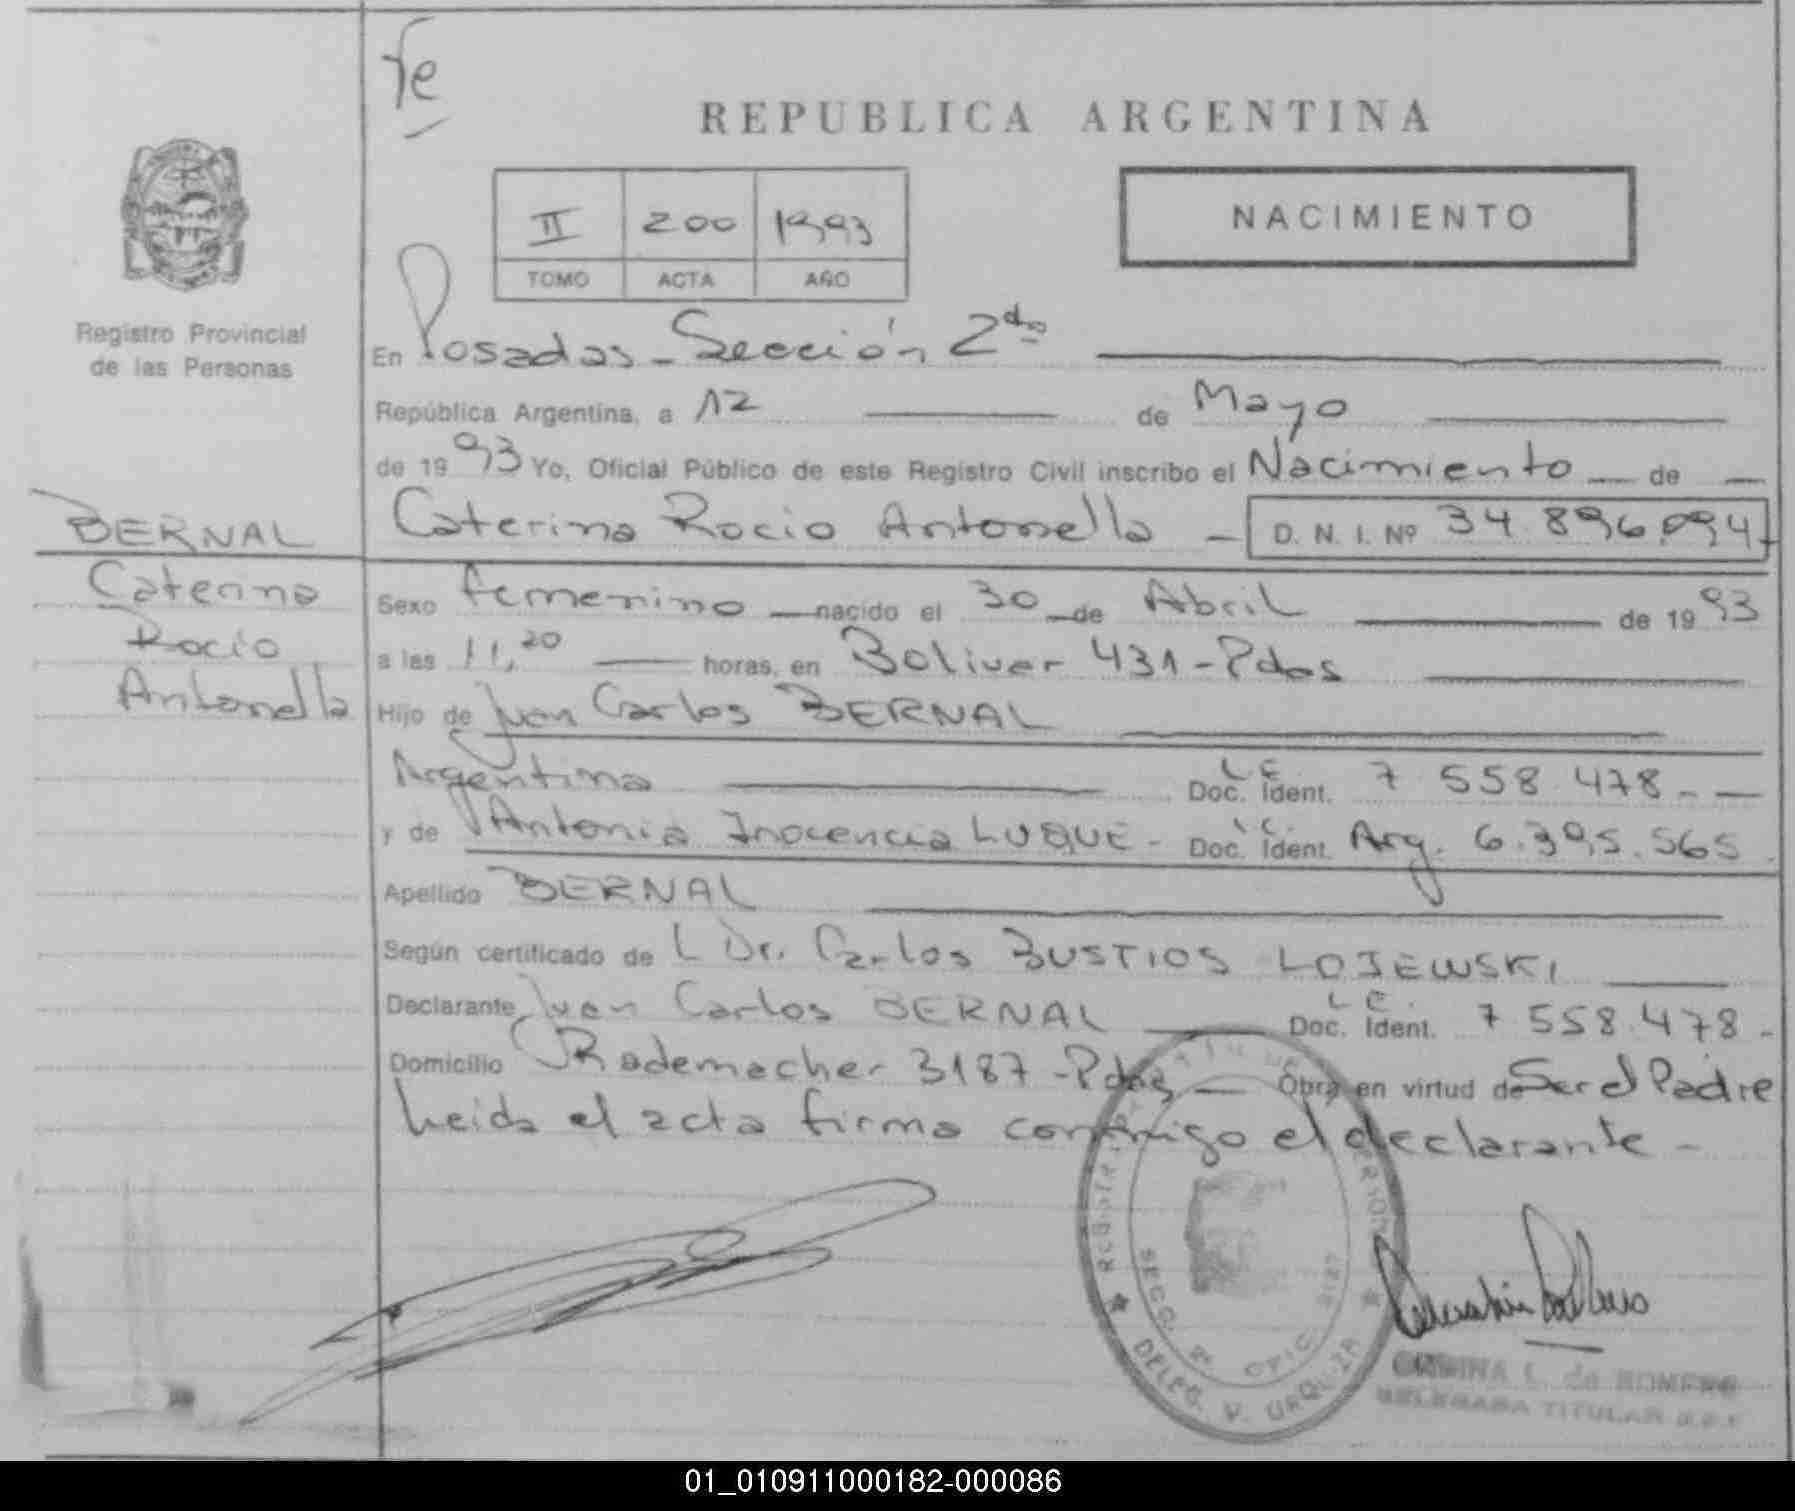 Fe
REPUBLICA ARGENTINA
NACIMIENTO
II 200 1993
TOMO ACTA AÑO
Registro Provincial
de las Personas
En Posadas - Sección 2da
República Argentina, a 12 de Mayo
de 1993 Yo, Oficial Público de este Registro Civil inscribo el Nacimiento de
BERNAL
Caterina Rocio Antonella - D. N. I. Nº 34.896.094
Caterina
Rocio
Antonella
Sexo femenino nacido el 30 de Abril de 1993
a las 11,20 horas, en Bolivar 431 - Pdas
Hijo de Juan Carlos BERNAL
Argentina L E Doc. Ident. 7 558.478
y de Antonia Inocencia LUQUE - L C. Doc. Ident. Arg. 6.395.565
Apellido BERNAL
Según certificado de L Dr. Carlos BUSTIOS LOJEWSKI
Declarante Juan Carlos BERNAL L E. Doc. Ident. 7 558.478 -
Domicilio Rademacher 3187 - Pdas Obra en virtud de Ser el Padre
Leida el acta firma conmigo el declarante -
SECC. 2ª OFIC.
DELEG. V. URQUIZA
L. de ROMERO
DELEGADA TITULAR
01_010911000182-000086